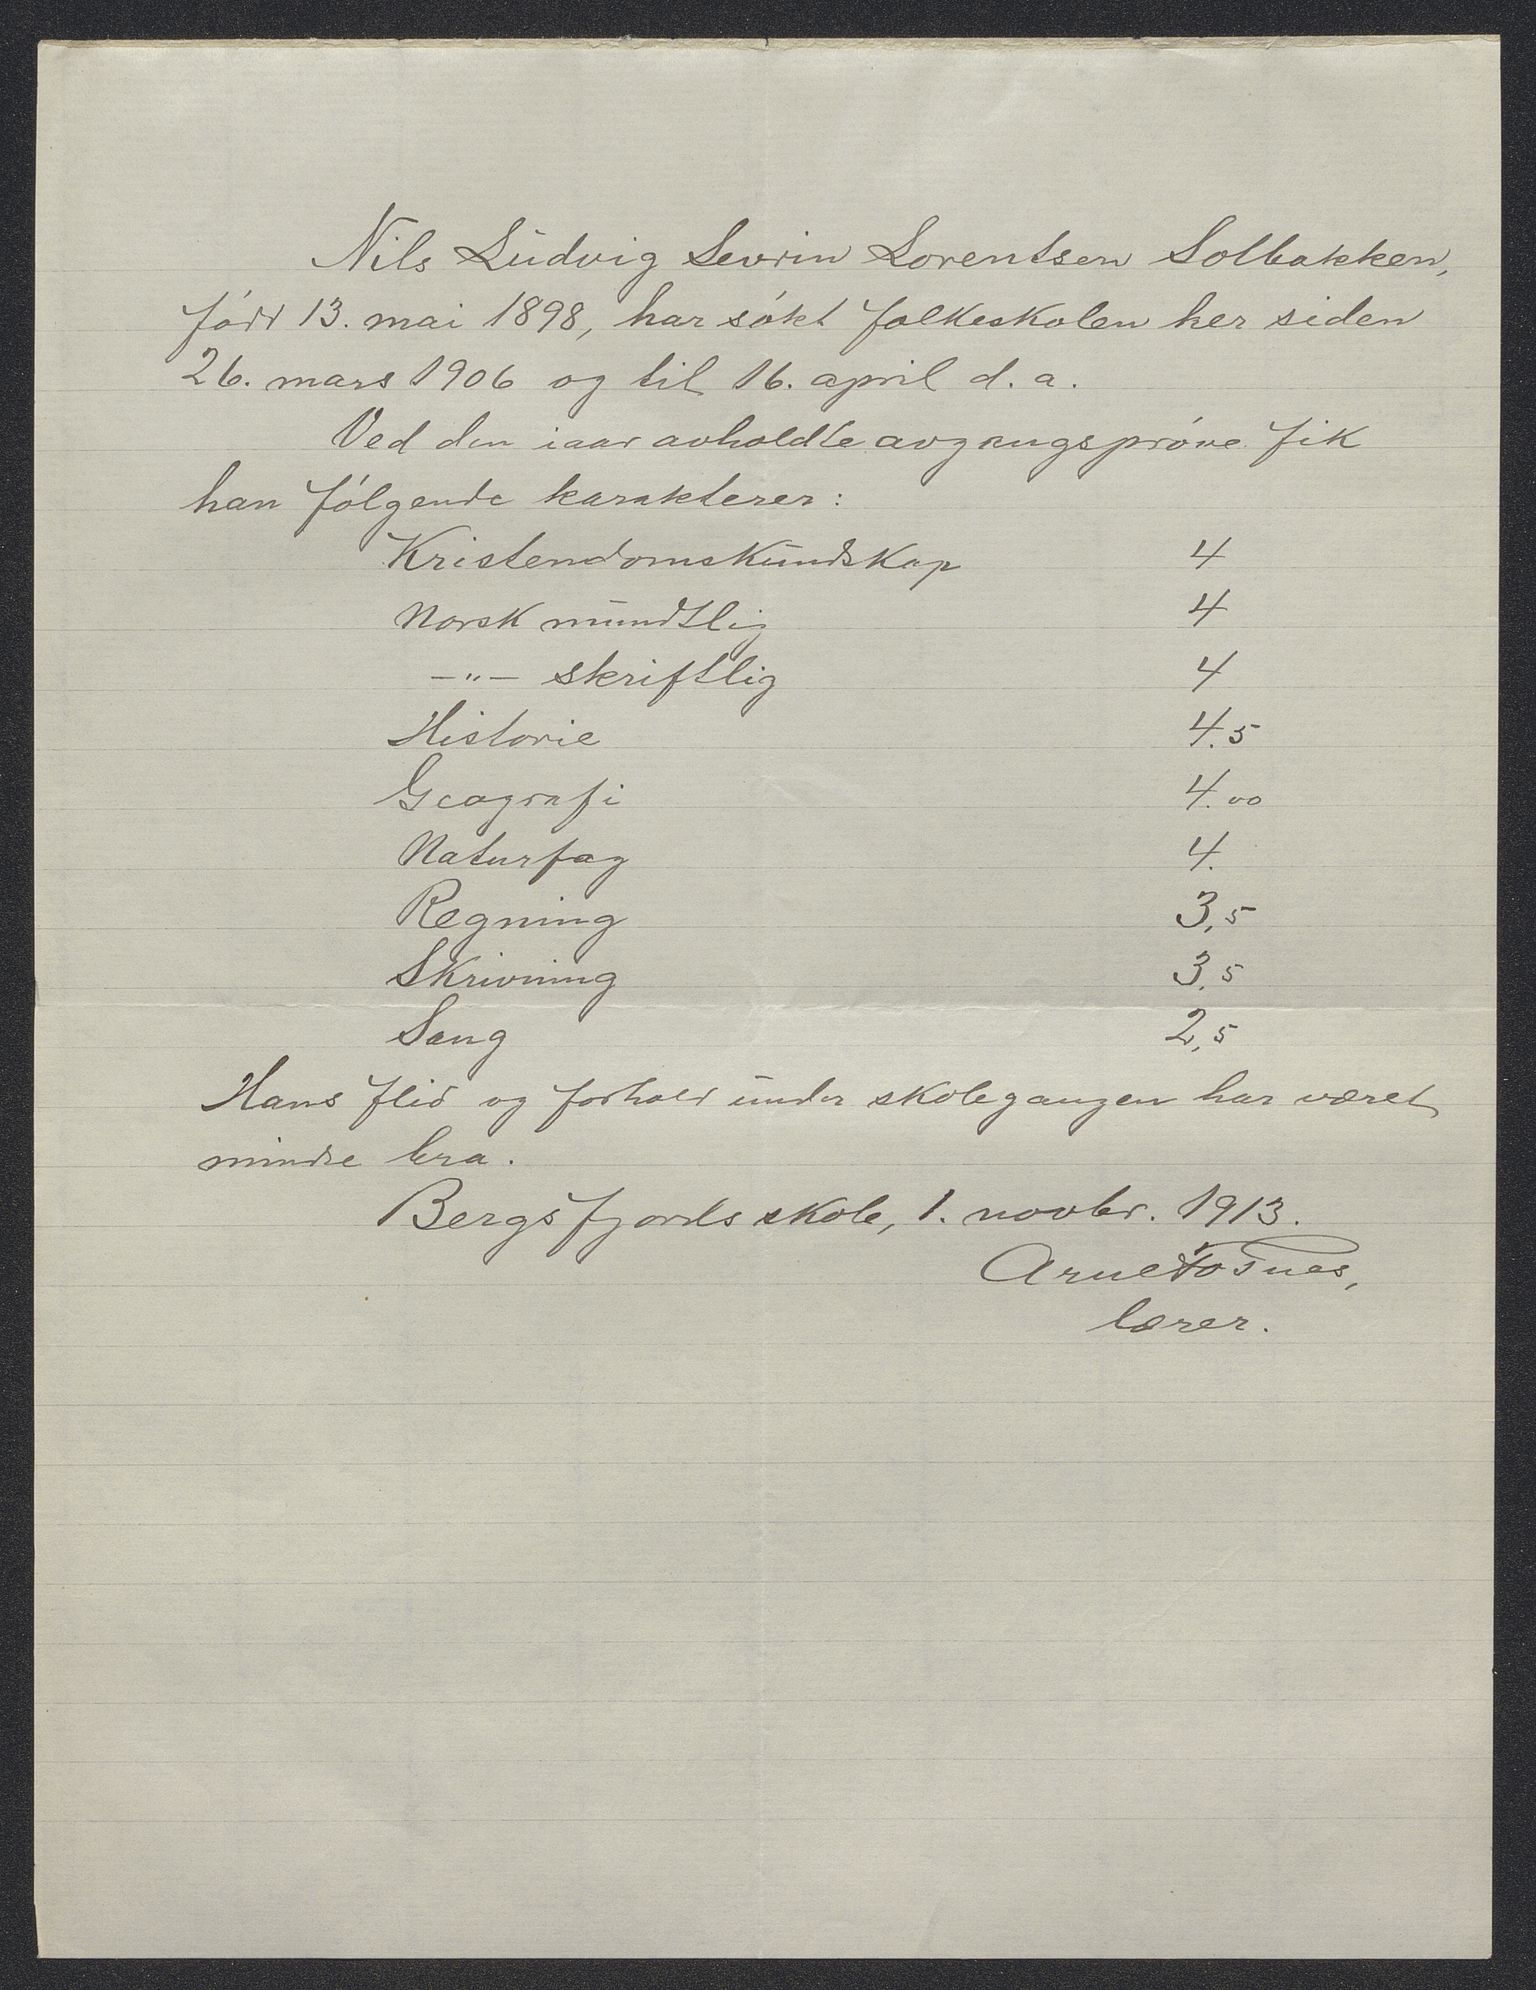 Nils Ludvig Sevrin Lorentsen Solbakken,
född 13. mai 1898, har søkt folkeskolen her siden
26. mars 1906 og til 16. april d. a.
Ved den iaar avholdte avgangsprøve fik
han følgende karakterer:
Kristendomskundskap 4
Norsk mundtlig 4
—"— skriftlig 4
Historie 4.5
Geografi 4.00
Naturfag 4.
Regning 3,5
Skrivning 3,5
Sang 2,5
Hans flid og forhold under skolegangen har været
mindre bra.
Bergsfjords skole, 1. novbr. 1913.
Arne
lærer.